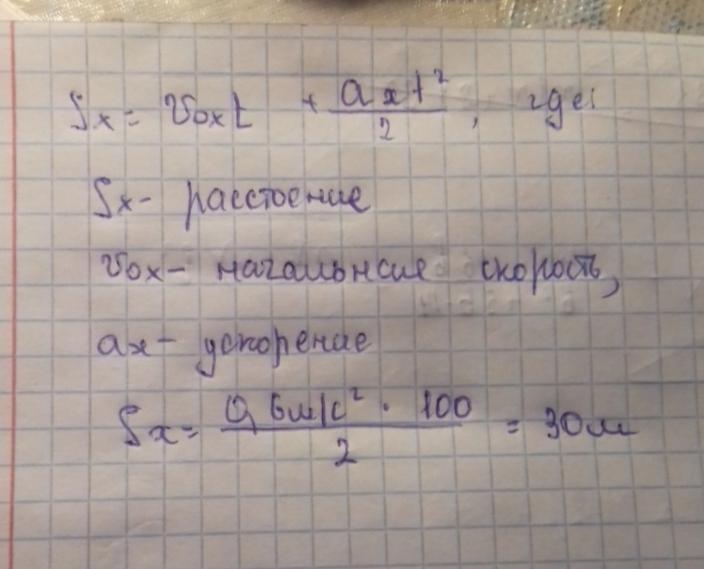 Sx = V₀xt + axt²/2, где:
Sx- расстоение
V₀x- начальная скорость,
ax- ускорение
Sx = 0,6м/с² · 100/2 = 30м